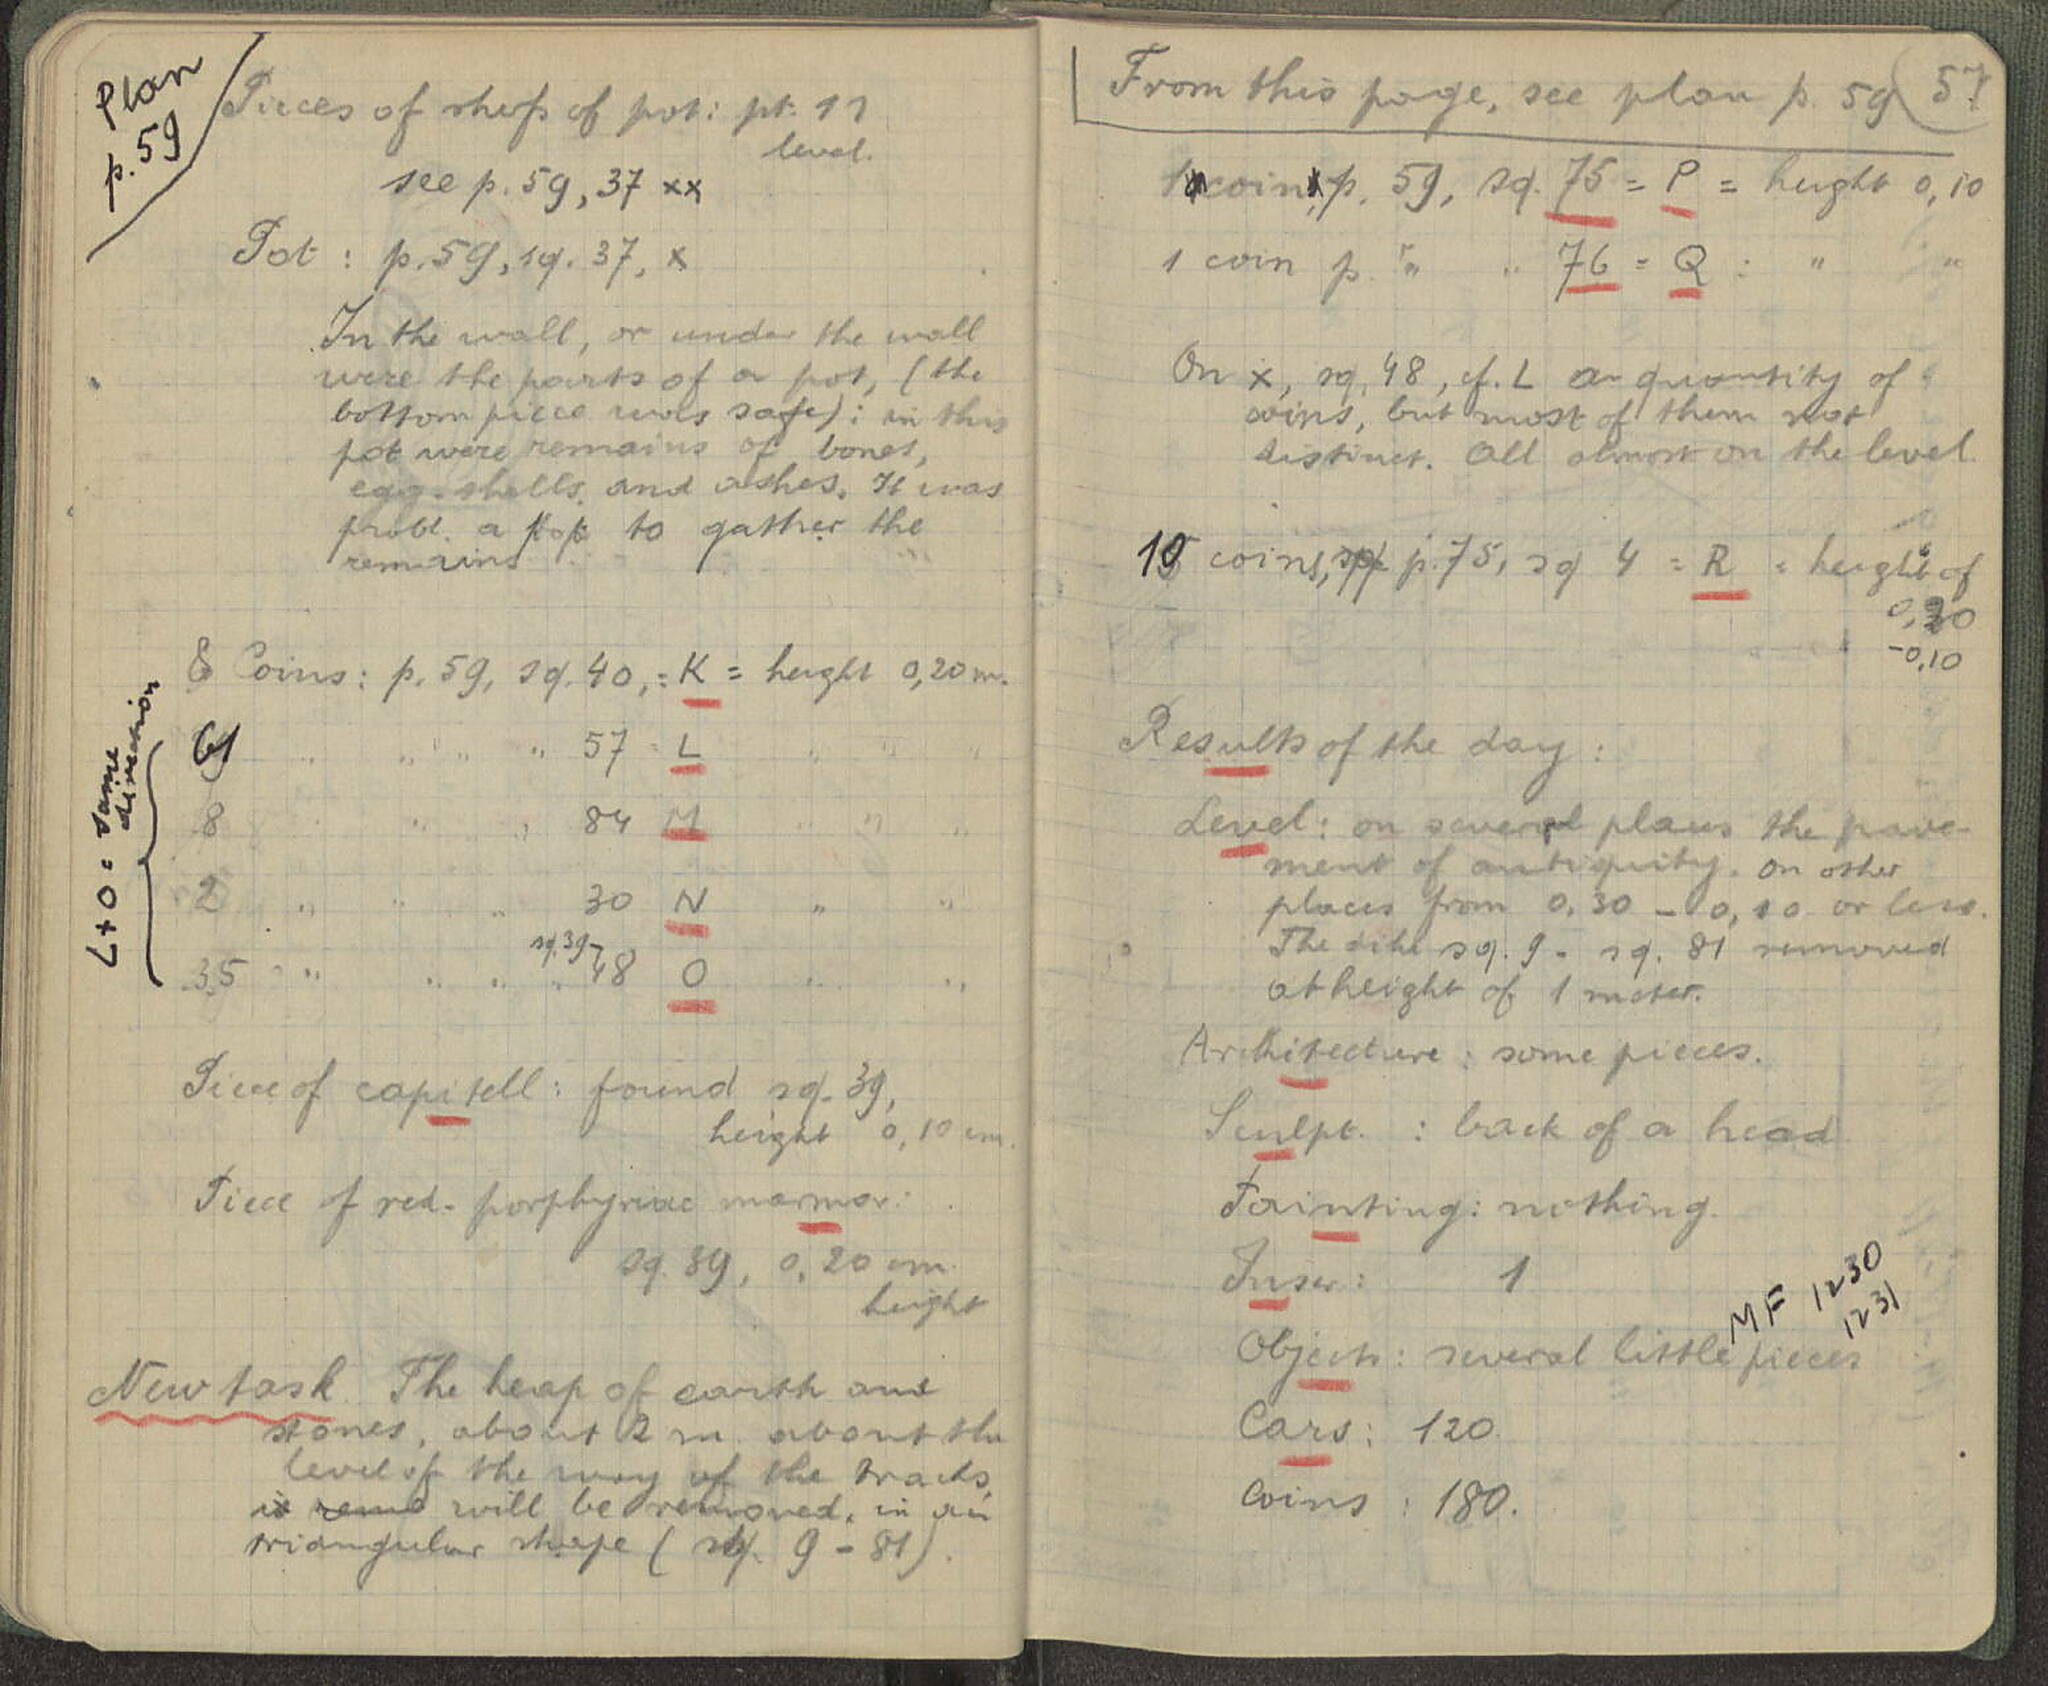 Plan
p. 59
Pieces of of pot: pt. 17
level.
see p. 59, 37 xx
Pot: p. 59, sq. 37, x
In the wall, or under the wall
were the parts of a pot, (the
bottom piece was safe): in this
pot were remains of bones,
egg-shells, and ashes. It was
probl. a pot to gather the
remains
8 Coins: p. 59, sq. 40, = K = height 0,20 m.
" " " " 57 = L " " "
8 " " " 84 M " " "
2 " " " 30 N " "
sq. 39
35 " " " " 48 O " "
L + O = same
direction
Piece of capitell: found sq. 39,
height 0,10 cm.
Piece of red-porphyriac marmor:
sq. 39, 0,20 cm
height
New task. The heap of earth and
stones, about 2 m. about the
level of the way of the tracks,
is remo will be removed, in an
triangular shape (sq. 9 - 81).
From this page, see plan p. 59
57
1 coin, p. 59, sq. 75 = P = height 0,10
1 coin p. " " 76 = Q : " "
On x, sq. 48, cf. L a quantity of
coins, but most of them not
distinct. All almost on the level.
coins, p. 75, sq 4 = R = height of
0,20
-0,10
Results of the day:
Level: on several places the pave-
ment of antiquity. On other
places from 0,30 - 0,10 or less.
The dike sq. 9 - sq. 81 removed
at height of 1 meter.
Architecture: some pieces.
Sculpt. : back of a head
Painting: nothing.
Inscr: 1
MF 1230
1231
Objects: several little pieces
Cars: 120
Coins: 180.